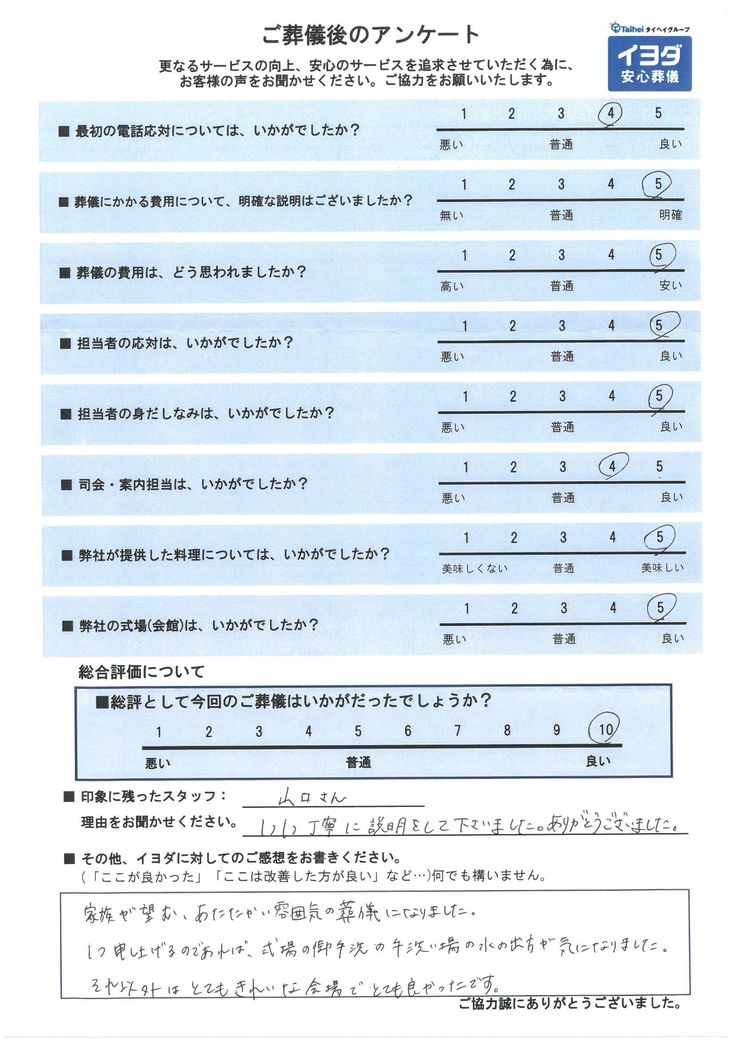 ご葬儀後のアンケート
Taihei タイヘイグループ
イヨダ
安心葬儀
更なるサービスの向上、安心のサービスを追求させていただく為に、
お客様の声をお聞かせください。ご協力をお願いいたします。
■ 最初の電話応対については、いかがでしたか？
1 2 3 4 5
悪い 普通 良い
■ 葬儀にかかる費用について、明確な説明はございましたか？
1 2 3 4 5
無い 普通 明確
■ 葬儀の費用は、どう思われましたか？
1 2 3 4 5
高い 普通 安い
■ 担当者の応対は、いかがでしたか？
1 2 3 4 5
悪い 普通 良い
■ 担当者の身だしなみは、いかがでしたか？
1 2 3 4 5
悪い 普通 良い
■ 司会・案内担当は、いかがでしたか？
1 2 3 4 5
悪い 普通 良い
■ 弊社が提供した料理については、いかがでしたか？
1 2 3 4 5
美味しくない 普通 美味しい
■ 弊社の式場(会館)は、いかがでしたか？
1 2 3 4 5
悪い 普通 良い
総合評価について
■総評として今回のご葬儀はいかがだったでしょうか？
1 2 3 4 5 6 7 8 9 10
悪い 普通 良い
■ 印象に残ったスタッフ： 山口さん
理由をお聞かせください。 1つ1つ丁寧に説明をして下さいました。ありがとうございました。
■ その他、イヨダに対してのご感想をお書きください。
(「ここが良かった」「ここは改善した方が良い」など…)何でも構いません。
家族が望む、あたたかい雰囲気の葬儀になりました。
1つ申し上げるのであれば、式場の御手洗の手洗い場の水の出方が気になりました。
それ以外はとてもきれいな会場でとても良かったです。
ご協力誠にありがとうございました。